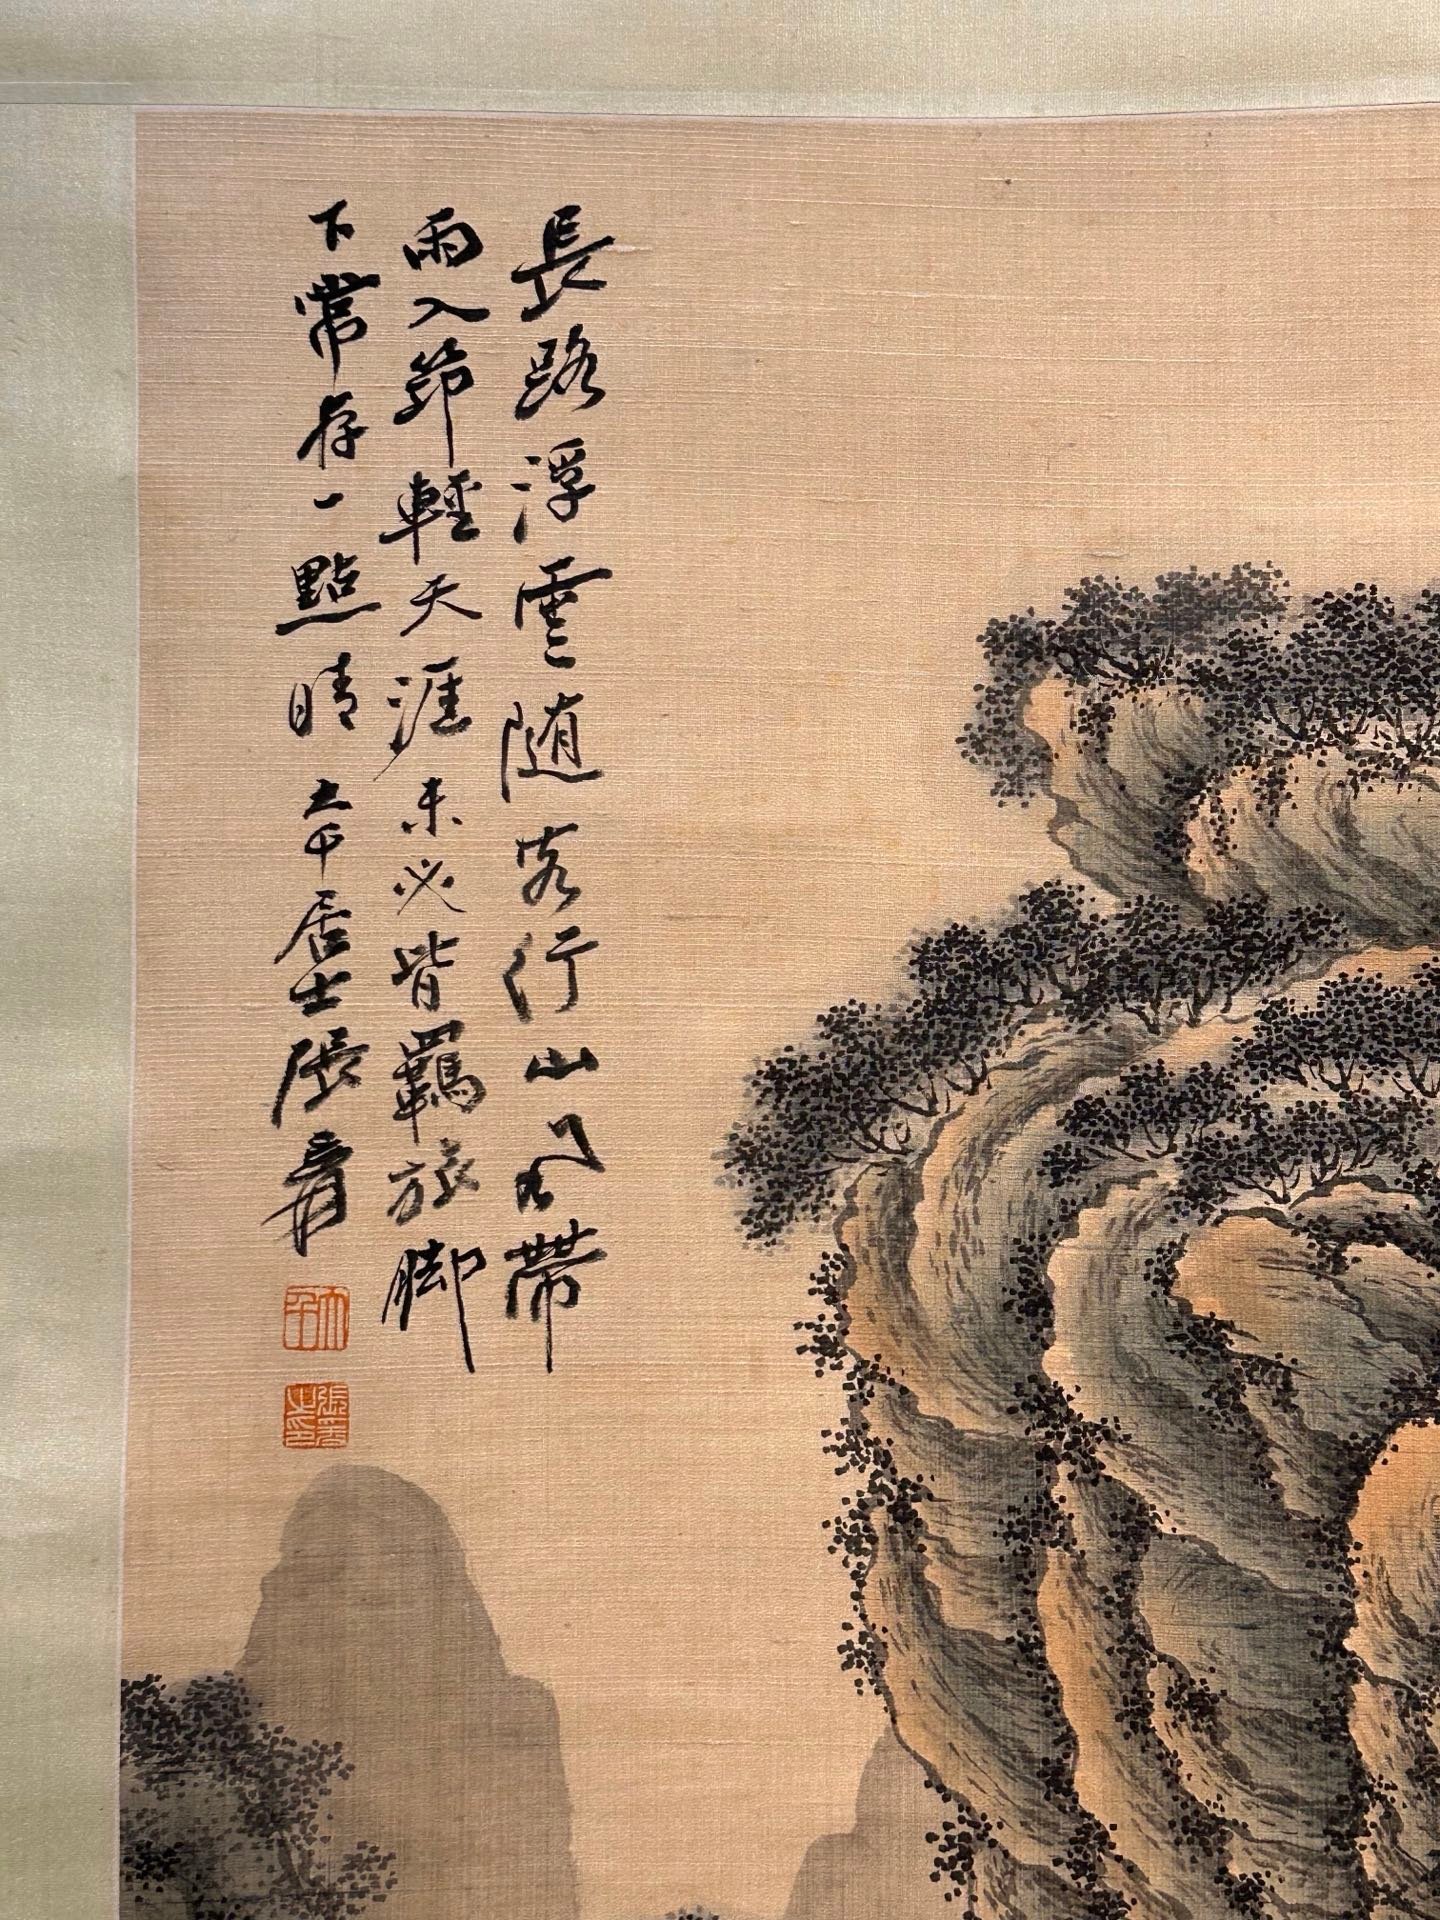 長路浮雲随客行山風帶
雨入筇輕天涯未必皆羈旅脚
下常存一點晴 大千居士張爰
大千
張爰之印